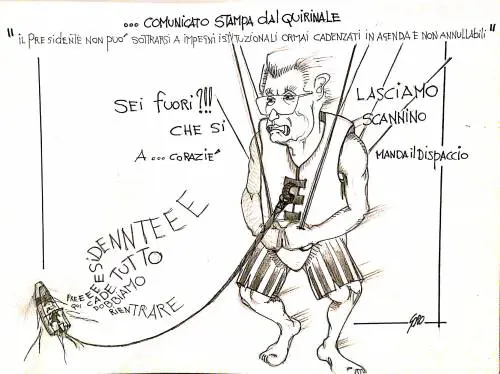 ... COMUNICATO STAMPA dal QUIRINALE
"IL PRESIDENTE NON PUO' SOTTRARSI A IMPEGNI ISTITUZIONALI ORMAI CADENZATI IN AGENDA E NON ANNULLABILI"
SEI FUORI?!!!
CHE SI
A... CORAZIE'
LASCIAMO
SCANNINO
MANDA il DISPACCIO
PREEEEEESIDENNTEEE
QUI CADE TUTTO
DOBBIAMO
RIENTRARE